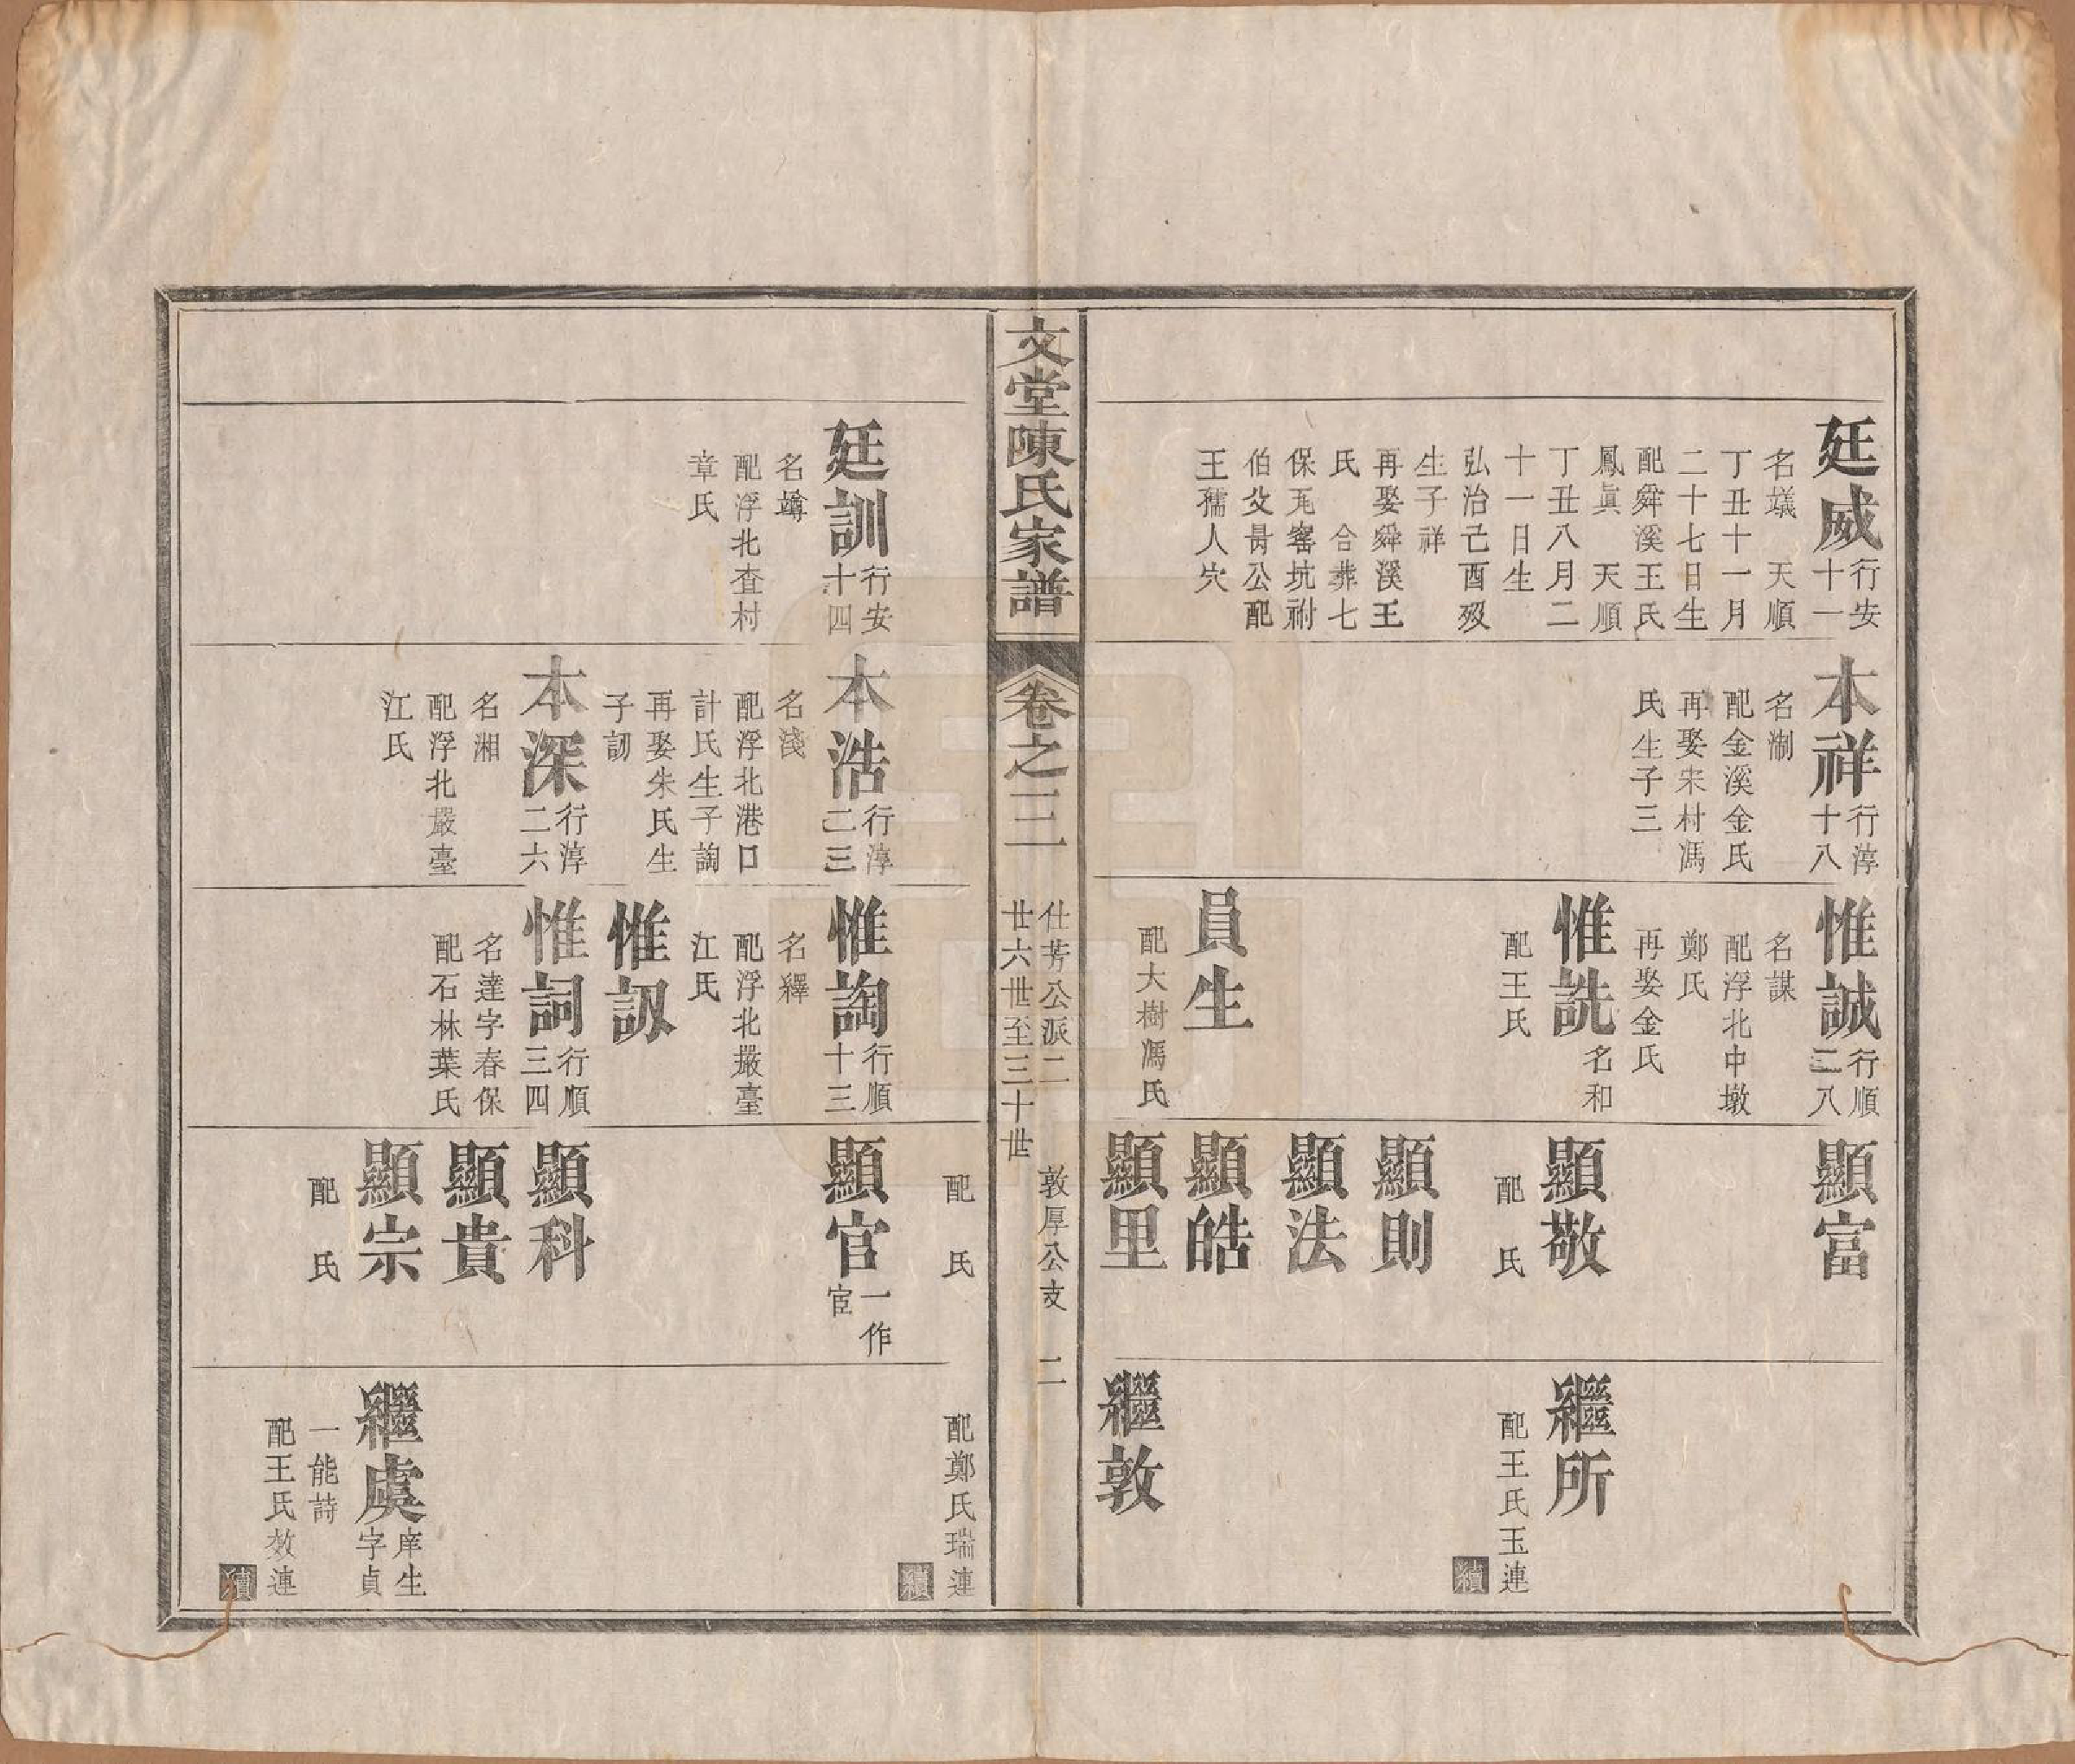 廷威 行安十一
名㙷 天順
丁丑十一月
二十七日生
配舜溪王氏
鳳眞 天順
丁丑八月二
十一日生
弘治己酉歿
生子祥
再娶舜溪王
氏 合葬七
保瓦窰坑祔
伯父昺公配
王孺人穴
本祥 行淳十八
名淛
配金溪金氏
再娶宋村馮
氏生子三
惟誠 行順二八
名謀
配浮北中墩
鄭氏
再娶金氏
惟詵 名和
配王氏
員生
配大樹馮氏
顯富
顯敬
配 氏
顯則
顯法
顯皓
顯里
繼所
配王氏玉連
續
繼敦
文堂陳氏家譜
卷之三
仕芳公派二 敦厚公支 二
廿六世至三十世
配 氏
配鄭氏瑞連
續
廷訓 行安十四
名竴
配浮北查村
章氏
本浩 行淳二三
名淺
配浮北港口
計氏生子諊
再娶朱氏生
子訒
本深 行淳二六
名湘
配浮北嚴臺
江氏
惟諊 行順十三
名繹
配浮北嚴臺
江氏
惟訒
惟詞 行順三四
名達字春保
配石林葉氏
顯官 一作宦
顯科
顯貴
顯宗
配 氏
繼虞 庠生字貞
一能詩
配王氏效連
續